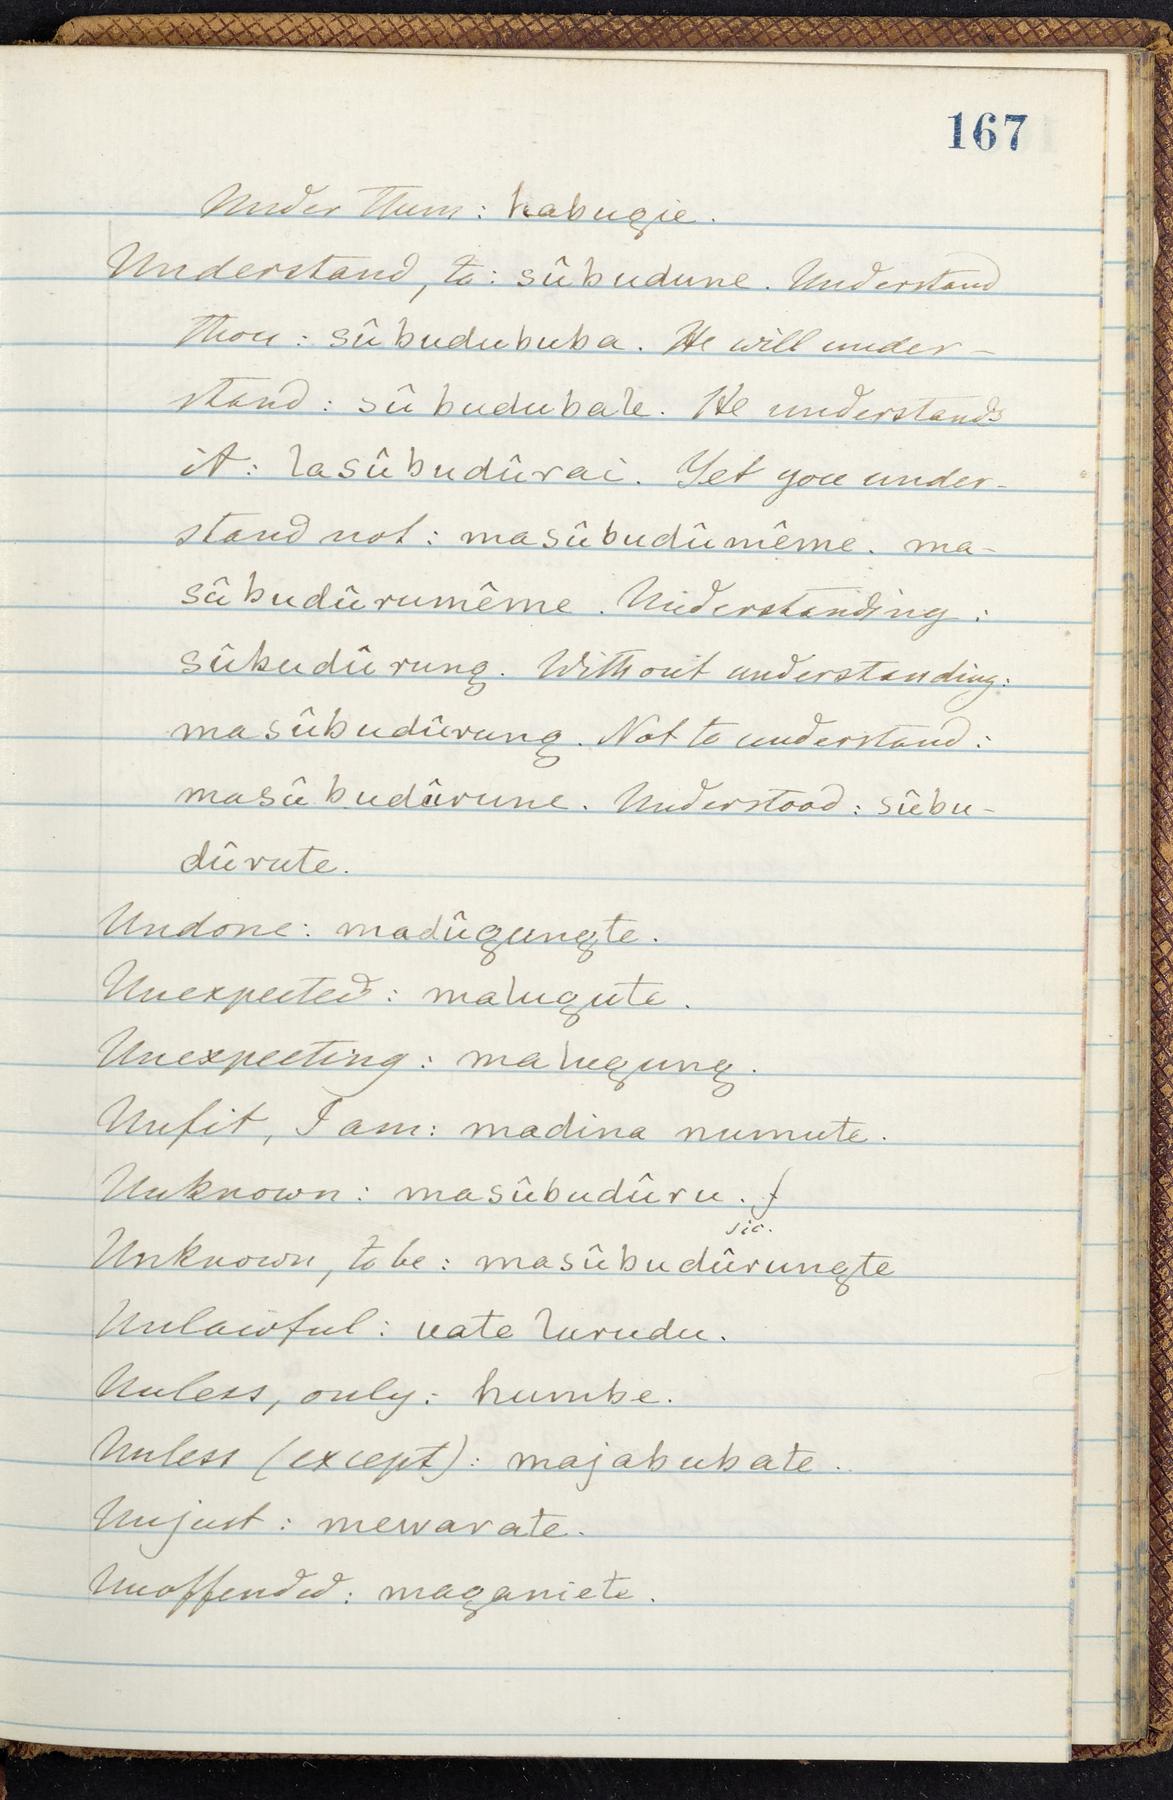 167
Under them: habugie.
Understand, to: sûbudune. Understand
thou: sûbudububa. He will under-
stand: sûbudubale. He understands
it: lasûbudûrai. Yet you under-
stand not: masûbudûmême. ma-
sûbudûrumême. Understanding:
sûbudûrung. Without understanding:
masûbudûrung. Not to understand:
masûbudûrune. Understood: sûbu-
dûrute.
Undone: madûgungte.
Unexpected: malugute.
Unexpecting: malugung.
Unfit, I am: madina numute.
Unknown: masûbudûru.
sic.
Unknown, to be: masûbudûrungte
Unlawful: uate lurudu.
Unless, only: humbe.
Unless (except): majabubate.
Unjust: mewarate.
Unoffended: maganiete.